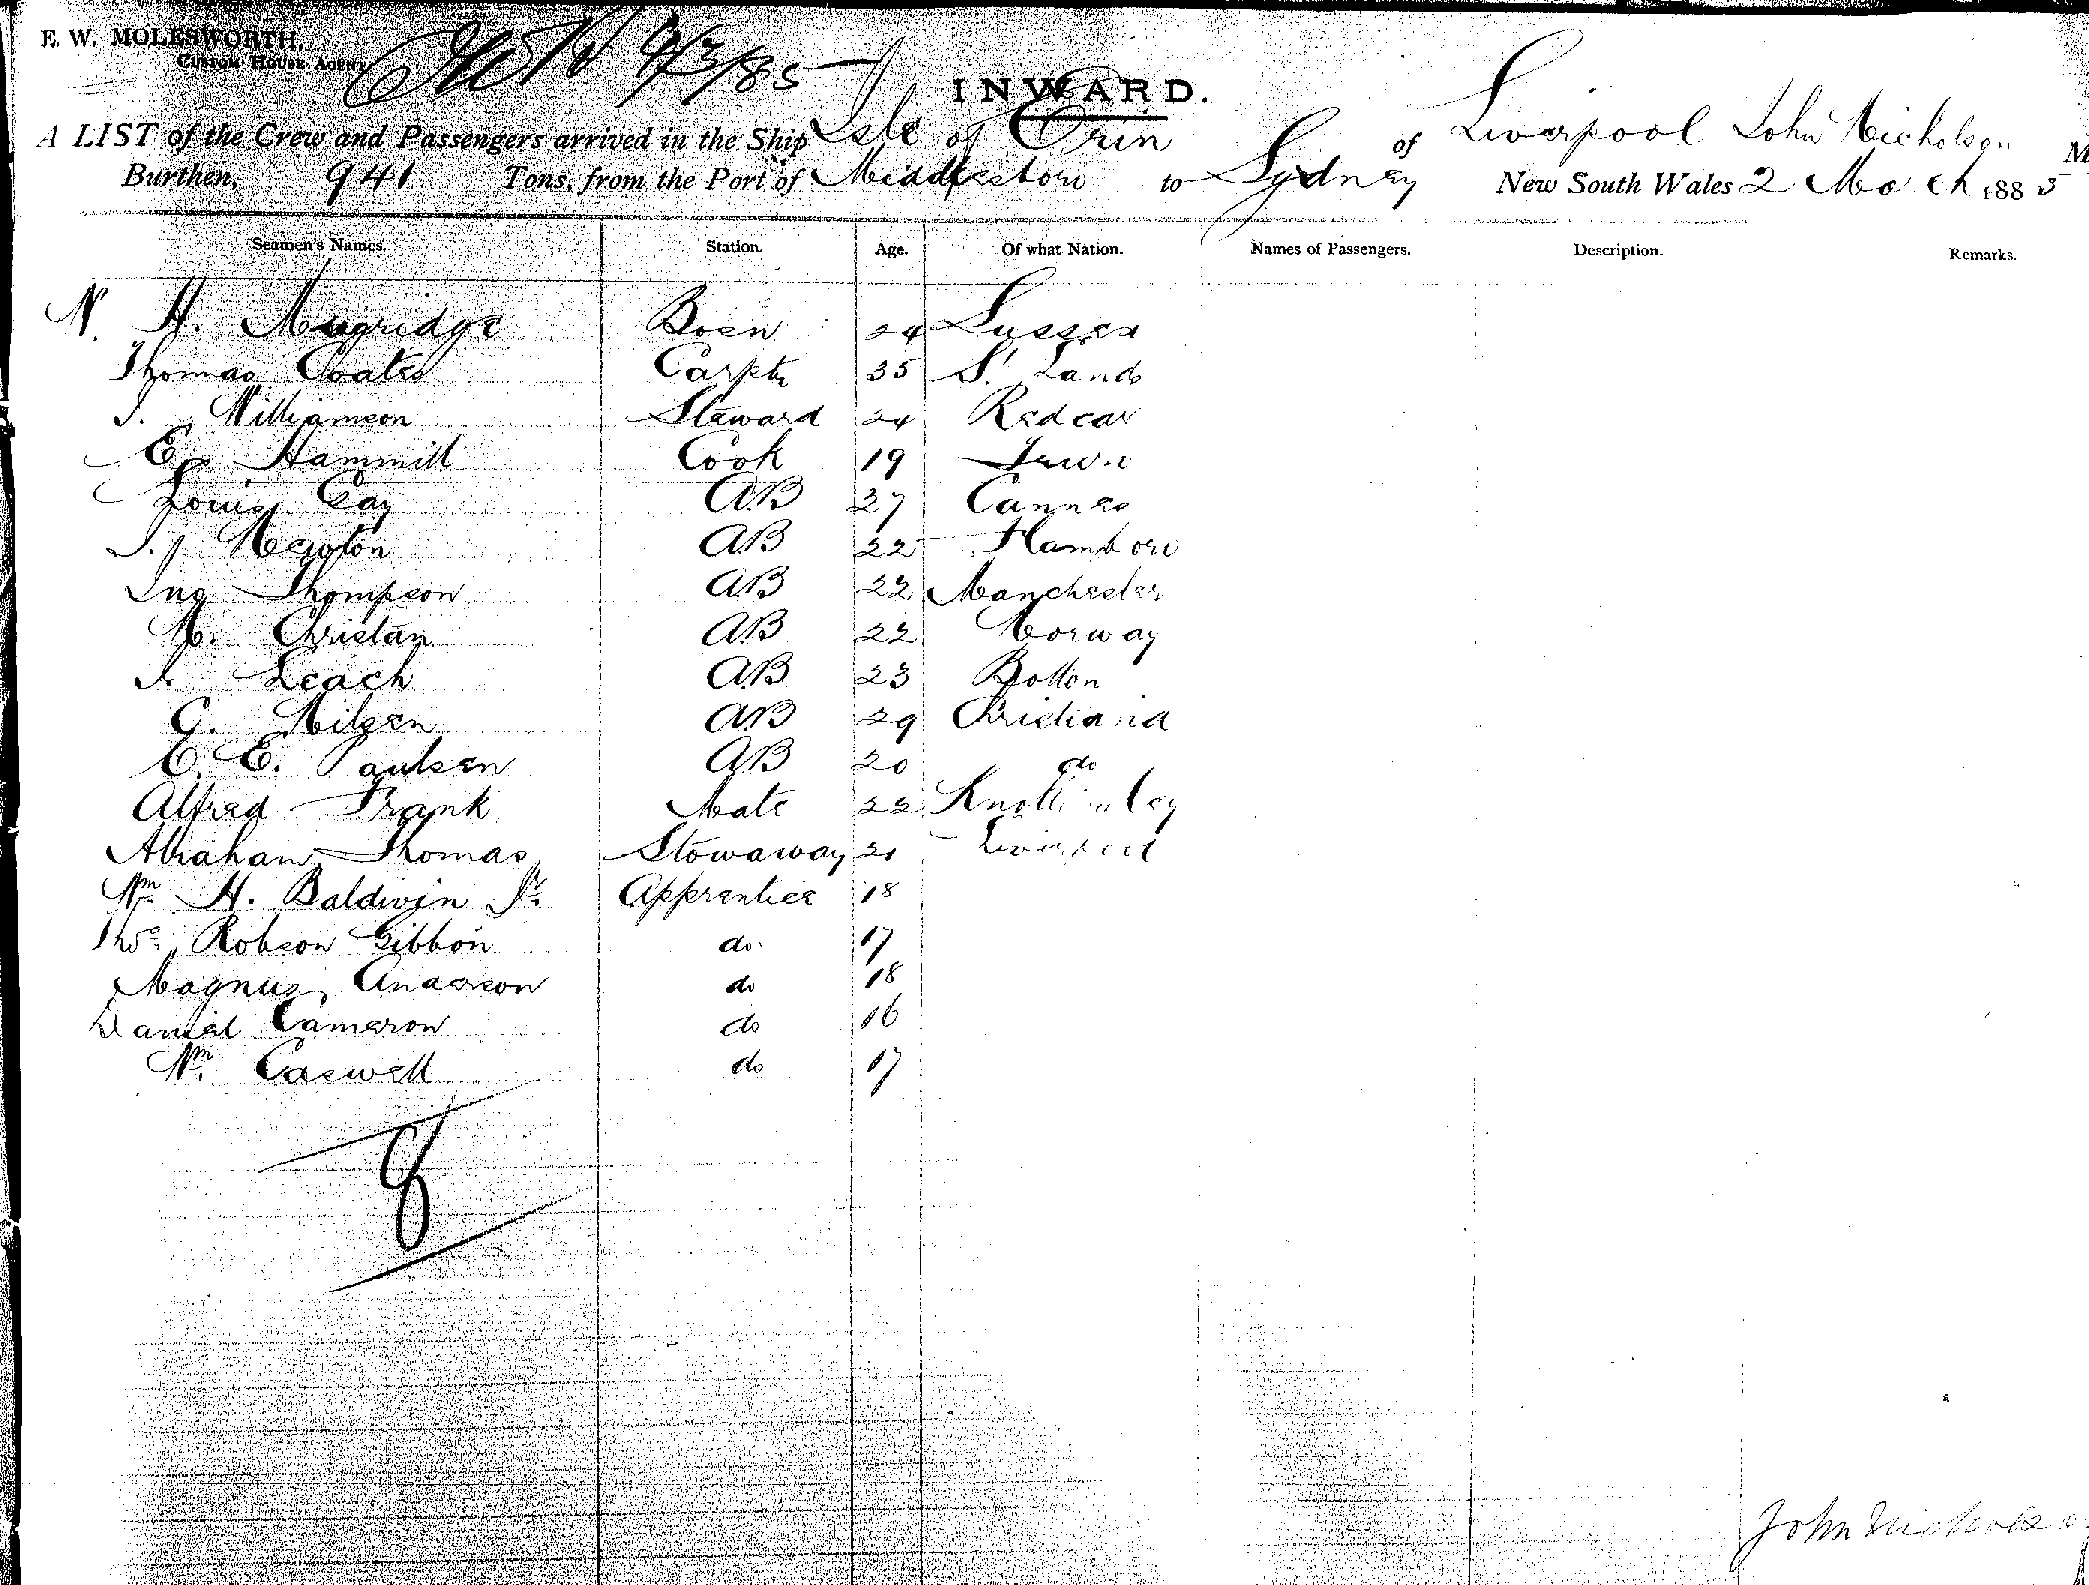 E. W. MOLESWORTH,
CUSTOM HOUSE AGENT
9/3/85
INWARD.
A LIST of the Crew and Passengers arrived in the Ship Isle of Erin of Liverpool John Nicholson M
Burthen, 941 Tons, from the Port of Middlesboro to Sydney New South Wales 2 March 1885
Seamen's Names. Station. Age. Of what Nation. Names of Passengers. Description. Remarks.
W. H. Mugridge Bosn 24 Sussex
Thomas Coates Carptr 35 S. Lands
J. Williamson Steward 24 Redcar
E. Hammill Cook 19
Louis Gay AB 27 Cannes
J. Newton AB 22 Hamboro
Thompson AB 22 Manchester
Christan AB 22 Norway
J. Leach AB 23 Bolton
C. Nilsen AB 29 Christiania
C. E. Paulsen AB 20 do
Alfred Frank Mate 22 Knottingley
Abraham Thomas Stowaway 21 Liverpool
Wm H. Baldwin Apprentice 18
Thos Robson Gibbon do 17
Magnus do 18
Daniel Cameron do 16
Wm Caswell do 17
John Nicholson